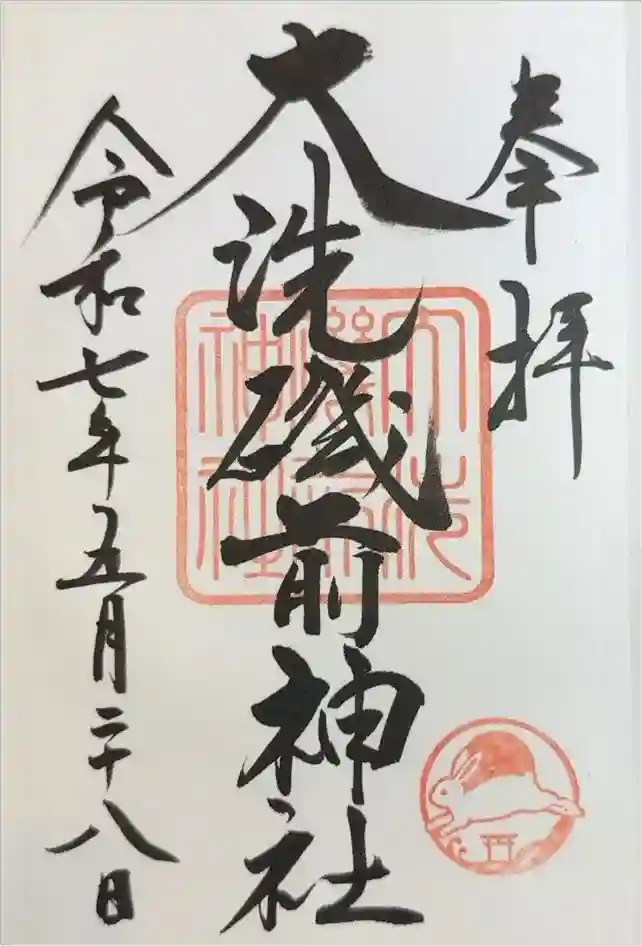 奉拝
大洗磯前神社
大洗
磯前
神社
令和七年五月二十八日